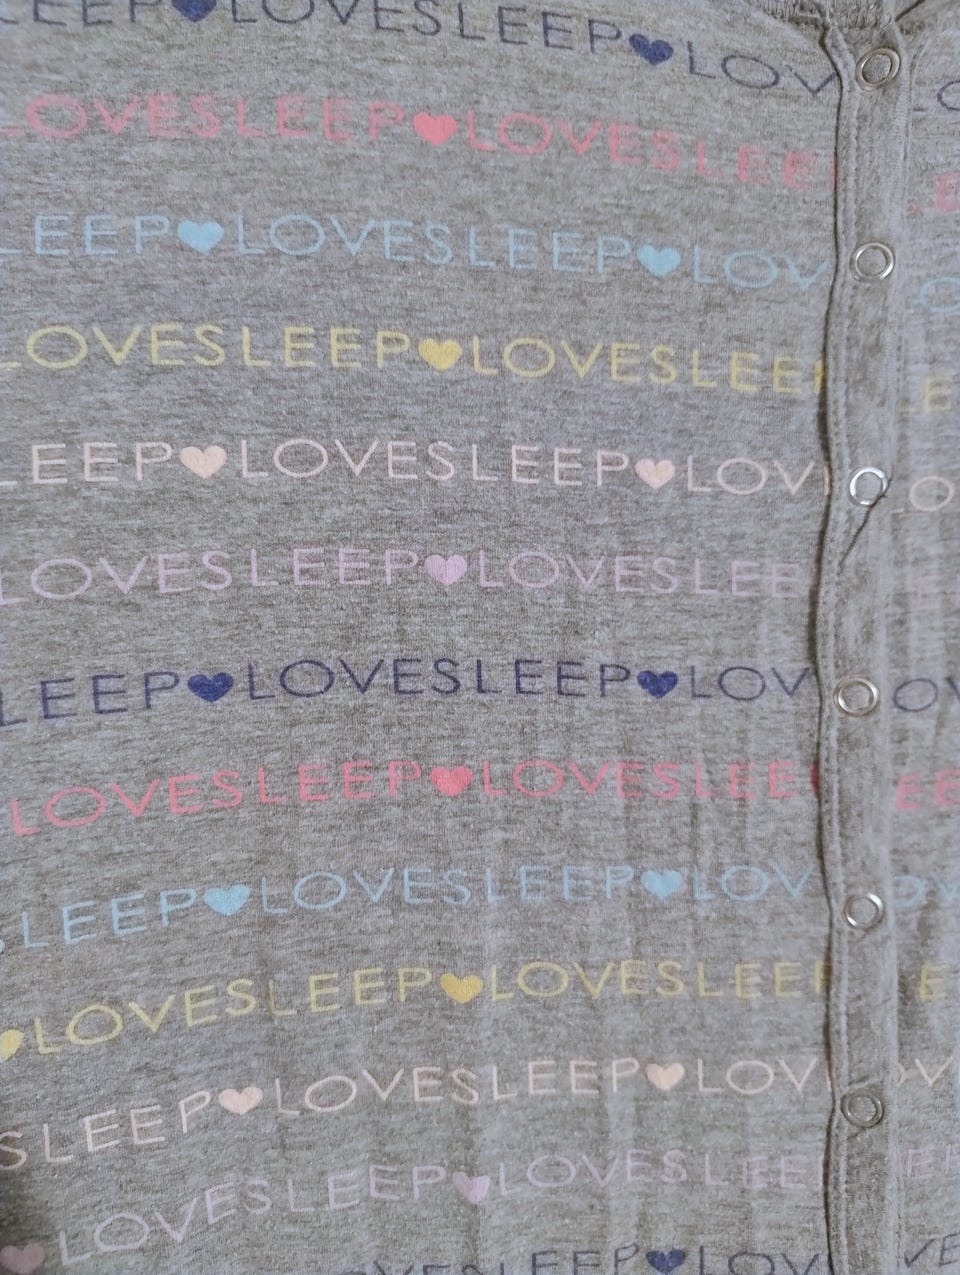 LEEP♥LOVESLEEP♥LOV LO
LOVESLEEP♥LOVESLEE E
LEEP♥LOVESLEEP♥LOV O
LOVESLEEP♥LOVESLEE LE
EEP♥LOVESLEEP♥LOV LO
LOVESLEEP♥LOVESLEE E
LEEP♥LOVESLEEP♥LOV OV
LOVESLEEP♥LOVESLEE EE
SLEEP♥LOVESLEEP♥LOV OV
♥LOVESLEEP♥LOVESLEE E
SLEEP♥LOVESLEEP♥LOV OV
♥LOVESLEEP♥LOVESLEE EE
OVESLEEP♥LOV VE